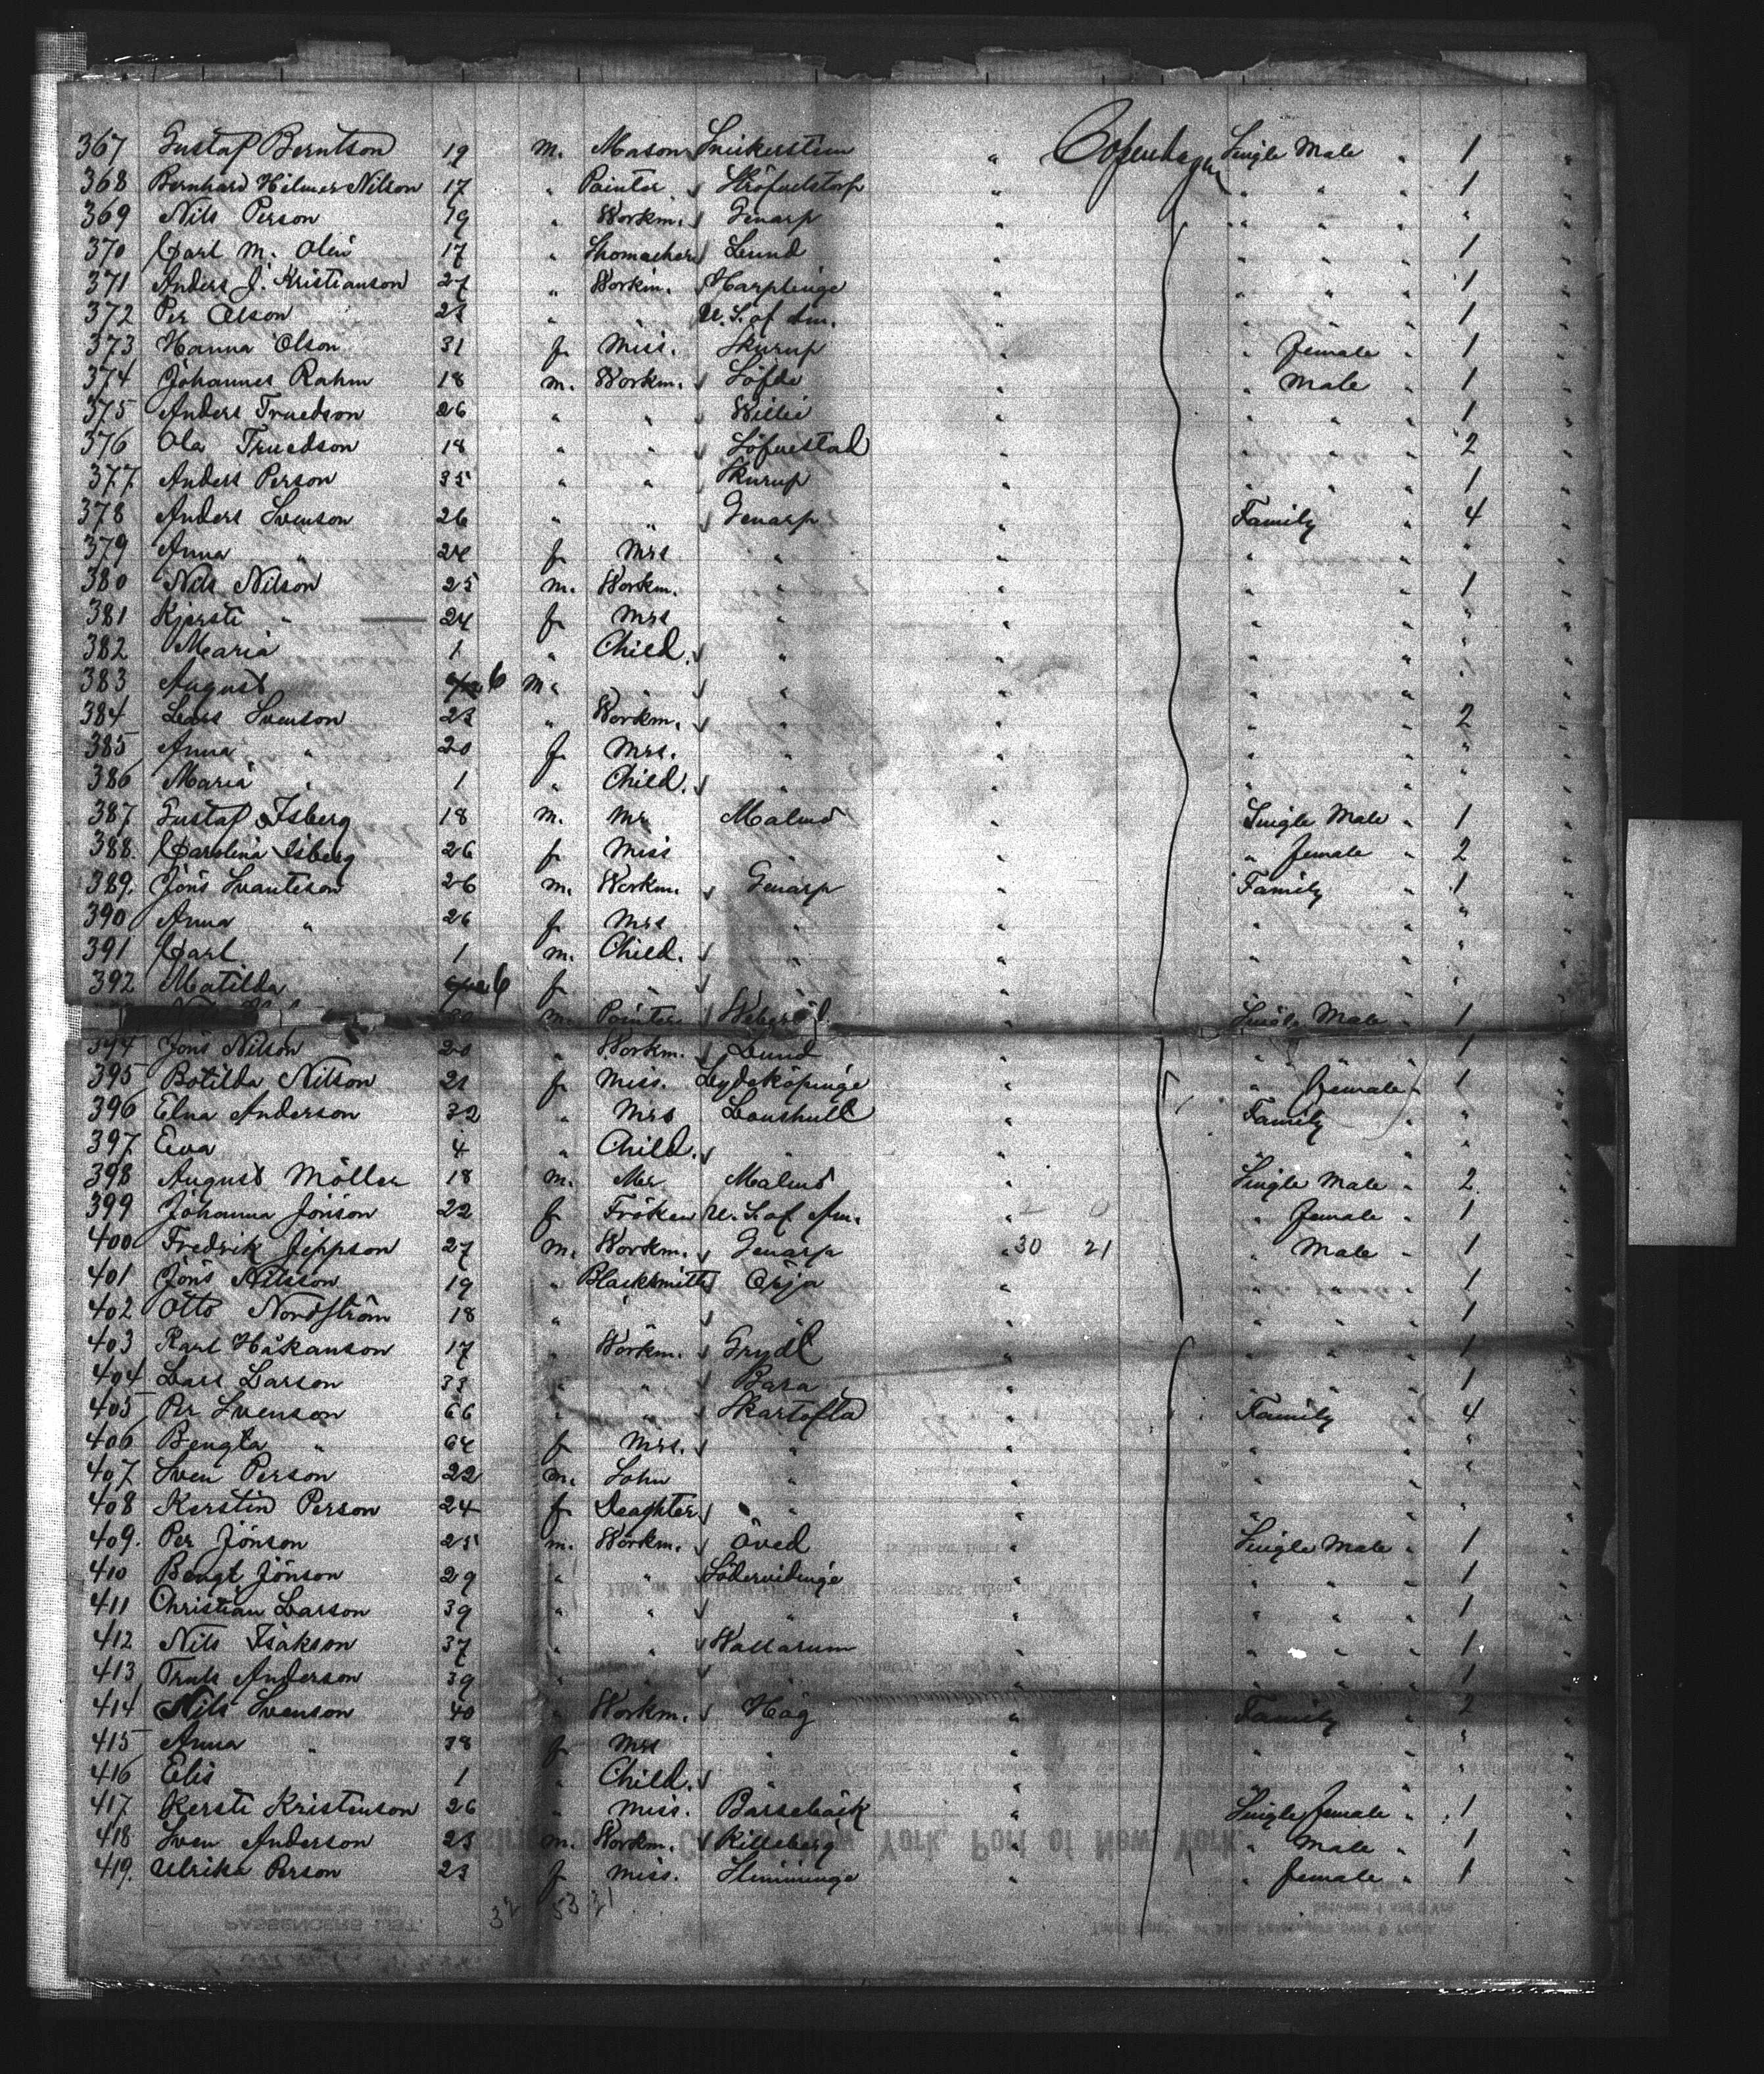 367 Gustaf Berntson 19 m. Mason Snickerstem " Copenhagen Single Male " 1 "
368 Bernhard Hilmer Nilson 17 " Painter Ströfvelstorp " " " " 1 "
369 Nils Person 19 " Workm. Genarp " " " " " "
370 Carl M. Olin 17 " Shomacher Lund " " " " 1 "
371 Anders J. Kristianson 27 " Workm. Harplinge " " " " 1 "
372 Per Olson 23 " " U. S. of Am. " " " " 1 "
373 Hanna Olson 31 f. Miss. Skurup " " female " 1 "
374 Johannes Rahm 18 m. Workm. Löfde " " male " 1 "
375 Anders Truedson 26 " " Willie " " " " 1 "
376 Ola Truedson 18 " " Löfvestad " " " " 2 "
377 Anders Person 35 " " Skurup " " " " 1 "
378 Anders Svenson 26 " " Genarp " Family " 4 "
379 Anna " 24 f. Mrs " " " " " "
380 Nils Nilson 25 m. Workm. " " " " 1 "
381 Kjersti " 24 f. Mrs " " " " " "
382 Maria 1 " Child. " " " " " "
383 August 6 m. " " " " " "
384 Lars Svenson 23 " Workm. " " " " 2 "
385 Anna " 20 f. Mrs. " " " " " "
386 Maria " 1 " Child. " " " " " "
387 Gustaf Isberg 18 m. Mr Malmö " Single Male " 1 "
388. Carolina Isberg 26 f. Miss " " female " 2 "
389. Jöns Svanteson 26 m. Workm. Genarp " Family " 1 "
390 Anna " 26 f. Mrs " " " " " "
391 Carl 1 m. Child. " " " " " "
392 Matilda 6 f. " " " " " " "
m. Painter Single Male " 1 "
394 Jöns Nilson 20 " Workm. Lund " " " 1 "
395 Botilda Nilson 21 f. Miss. Lydeköpinge " " female " 1 "
396 Elna Anderson 32 " Mrs Lonshult " Family " " "
397 Eva 4 " Child. " " " " " "
398 August Möller 18 m. Mr Malmö " Single Male " 2 "
399 Johanna Jönson 22 f. Fröken U. S. of Am. " " female " 1 "
400 Fredrik Jeppson 27 m. Workm. Genarp " 30 21 " Male " 1 "
401 Jöns Nilsson 19 " Blacksmith Örja " " " " 1 "
402 Otto Nordström 18 " " " " " " " 1 "
403 Karl Håkanson 17 " Workm. Grydl " " " " 1 "
404 Lars Larson 33 " " Bara " " " " 1 "
405 Per Svenson 66 " " Skartofta " Family " 4 "
406 Bengta " 64 f. Mrs. " " " " " "
407 Sven Person 22 m. Sohn " " " " " "
408 Kerstin Person 24 f. Deaghter " " " " " "
409. Per Jönson 25 m. Workm. Öved " Single Male " 1 "
410 Bengt Jönson 29 " " Södervidinge " " " " 1 "
411 Christian Larson 39 " " " " " " " 1 "
412 Nils Isakson 37 " " Wallarum " " " " 1 "
413 Truls Anderson 39 " " " " " " " 1 "
414 Nils Svenson 40 " Workm. Hög " Family " 2 "
415 Anna " 38 f. Mrs " " " " " "
416 Elis 1 " Child. " " " " " "
417 Kersti Kristenson 26 " Miss. Barsebäck " Single female " 1 "
418 Sven Anderson 23 m. Workm. Killeberg " " Male " 1 "
419. Ulrika Person 23 f. Miss. Slimminge " " female " 1 "
32 53 21
PASSENGERS LIST.
York, Port of New York.